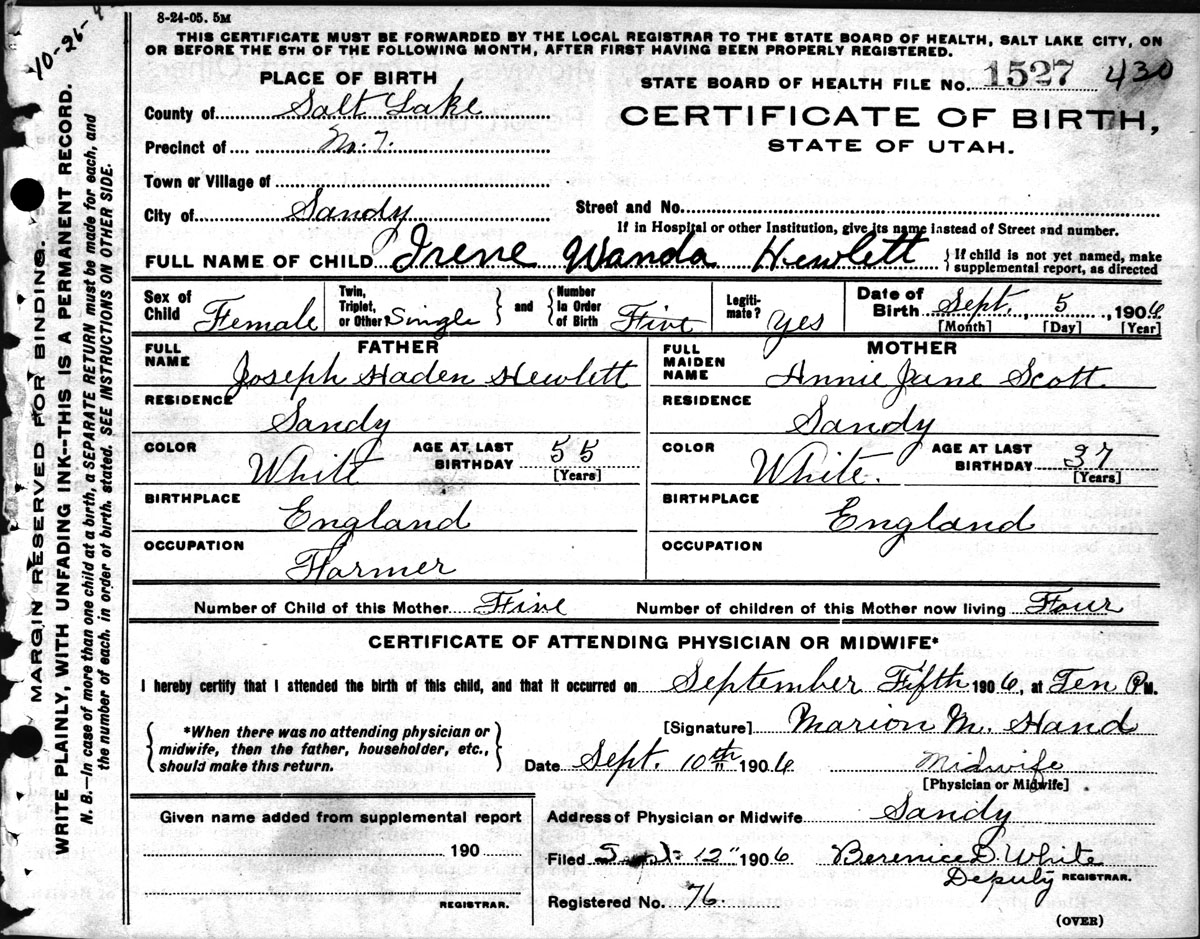 8-24-05. 5M
THIS CERTIFICATE MUST BE FORWARDED BY THE LOCAL REGISTRAR TO THE STATE BOARD OF HEALTH, SALT LAKE CITY, ON
OR BEFORE THE 5TH OF THE FOLLOWING MONTH, AFTER FIRST HAVING BEEN PROPERLY REGISTERED.
10-26-
MARGIN RESERVED FOR BINDING.
WRITE PLAINLY, WITH UNFADING INK--THIS IS A PERMANENT RECORD.
N. B.—In case of more than one child at a birth, a SEPARATE RETURN must be made for each, and
the number of each, in order of birth, stated. SEE INSTRUCTIONS ON OTHER SIDE.
PLACE OF BIRTH
County of Salt Lake
Precinct of
Town or Village of
City of Sandy
STATE BOARD OF HEALTH FILE No. 1527 430
CERTIFICATE OF BIRTH,
STATE OF UTAH.
Street and No.
If in Hospital or other Institution, give its name instead of Street and number.
FULL NAME OF CHILD Irene Wanda Hewlett { If child is not yet named, make
supplemental report, as directed
Sex of Child Female
Twin, Triplet, or Other Single } and { Number in Order of Birth Five
Legiti-mate? Yes
Date of Birth Sept. 5, 1906
[Month] [Day] [Year]
FATHER
FULL NAME Joseph Haden Hewlett
RESIDENCE Sandy
COLOR White AGE AT LAST BIRTHDAY 55 [Years]
BIRTHPLACE England
OCCUPATION Farmer
MOTHER
FULL MAIDEN NAME Annie Jane Scott
RESIDENCE Sandy
COLOR White. AGE AT LAST BIRTHDAY 37 [Years]
BIRTHPLACE England
OCCUPATION
Number of Child of this Mother Five Number of children of this Mother now living Four
CERTIFICATE OF ATTENDING PHYSICIAN OR MIDWIFE*
I hereby certify that I attended the birth of this child, and that it occurred on September Fifth 1906, at Ten P M.
{ *When there was no attending physician or
midwife, then the father, householder, etc.,
should make this return. }
[Signature] Marion M. Hand
Date Sept. 10th 1906 Midwife
[Physician or Midwife]
Given name added from supplemental report
190
REGISTRAR.
Address of Physician or Midwife Sandy
Filed Sept 12" 1906 Berenice S. White
Deputy REGISTRAR.
Registered No. 76
(OVER)